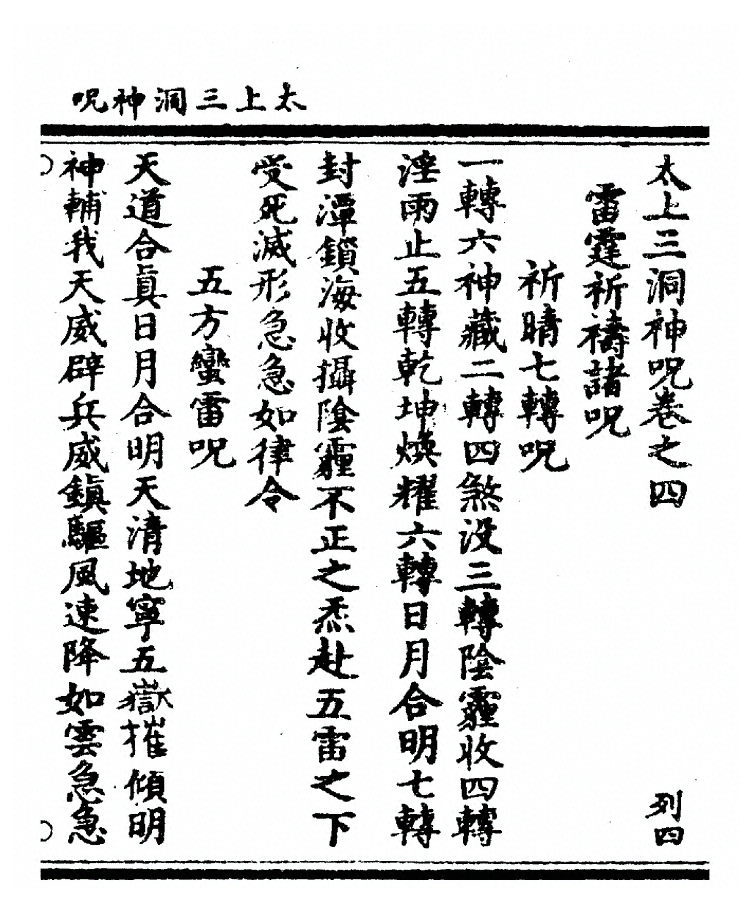 太上三洞神呪
太上三洞神呪卷之四 列四
雷霆祈禱諸呪
祈晴七轉呪
一轉六神藏二轉四煞没三轉陰霾收四轉
淫雨止五轉乾坤煥耀六轉日月合明七轉
封潭鎖海收攝陰霾不正之炁赴五雷之下
受死滅形急急如律令
五方蠻雷呪
天道合真日月合明天清地寧五嶽摧傾明
神輔我天威辟兵威鎮驅風速降如雲急急